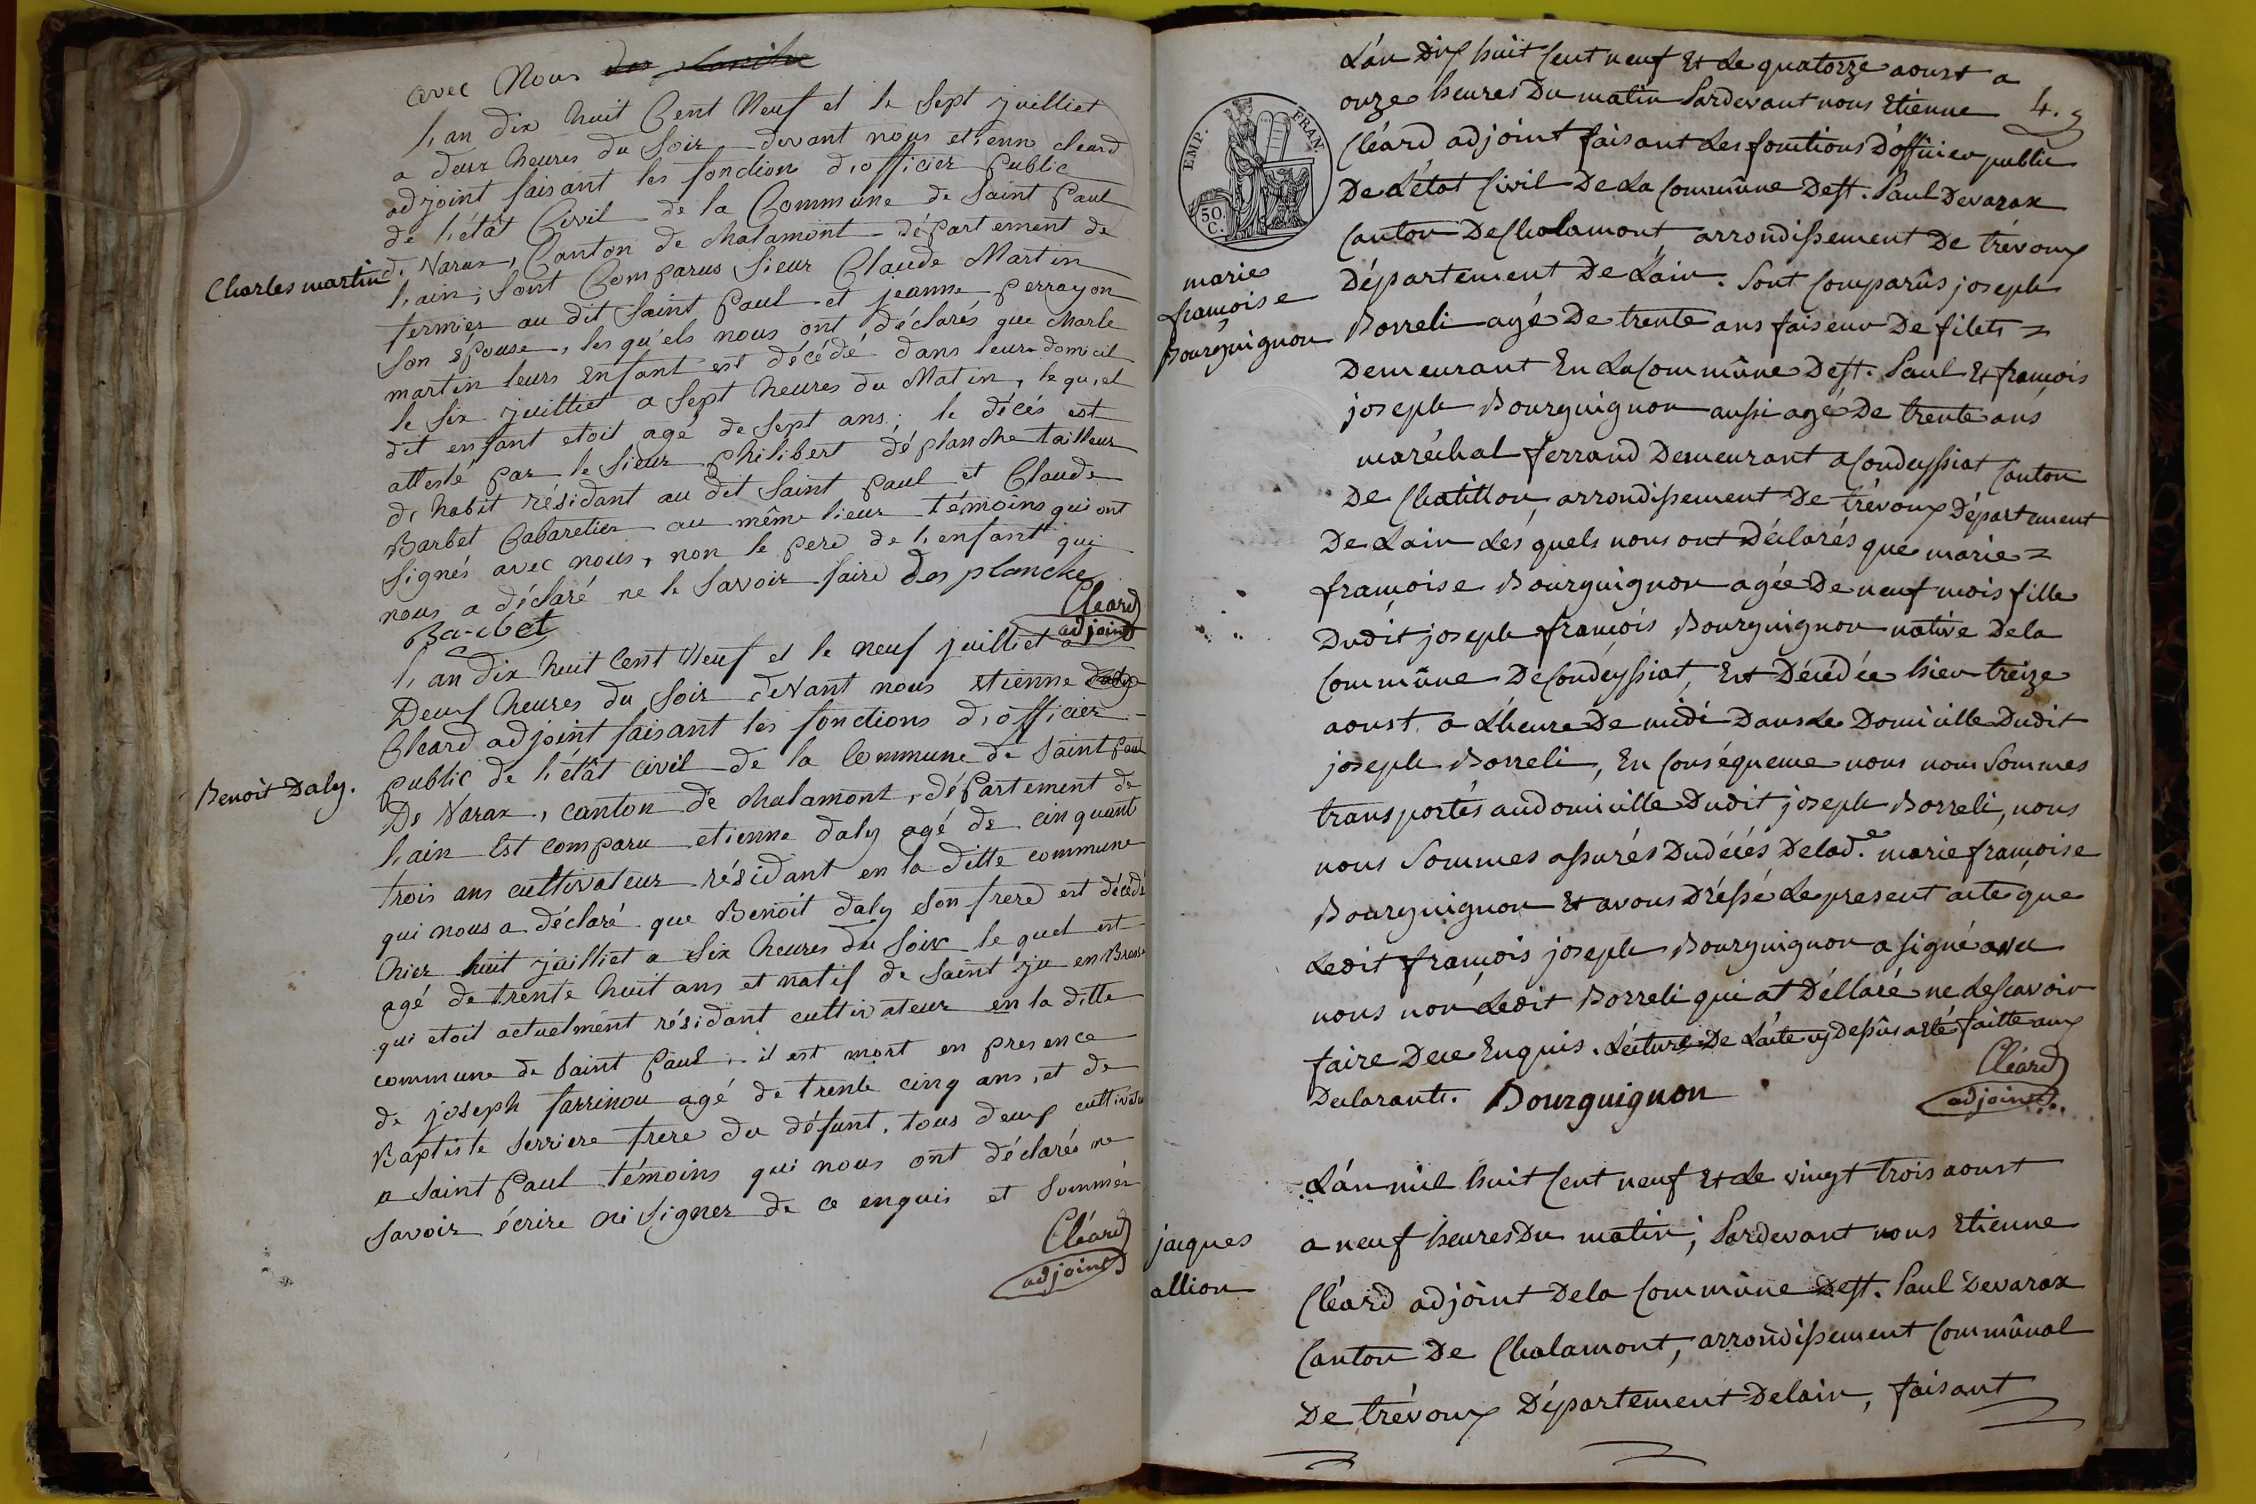 avec Nous
L'an dix huit Cent Neuf et le Sept juilliet
a deux heures du Soir devant nous etienne cleard
adjoint faisant les fonction d'officier Public
de l'état Civil de la Commune de Saint Paul
de Varax, Canton de chalamont département de
Charles martin
l'ain; Sont Comparus Sieur Claude Martin
fermier au dit Saint Paul et jeanne perrayon
Son épouse, les qu'els nous ont déclarés que charle
martin leurs enfant est décédé dans leurs domicil
le Six juilliet a Sept heures du Matin, le quel
dit enfant etoit agé de Sept ans; le décés est
attesté par le Sieur philibert déplanche tailleur
d'habit résidant au dit Saint Paul et Claude
Barbet Cabaretier au même lieux témoins qui ont
Signés avec nous, non le pere de l'enfant qui
nous a déclaré ne le Savoir faire des planche
Barbet
Cléard
adjoint
L'an dix huit Cent Neuf et le neuf juilliet a
Deux heures du Soir devant nous etienne
Cleard adjoint faisant les fonctions d'officier
public de l'état civil de la Commune de Saint Paul
Benoit Daly.
De Varax, canton de chalamont, département de
l'ain Est comparu etienne daly agé de cinquante
trois ans cultivateur résidant en la ditte commune
qui nous a déclaré que Benoit daly Son frere est décédé
hier huit juilliet a Six heures du Soir le quel est
agé de trente huit ans et natif de Saint ju en Bresse
qui etoit actuelment résidant cultivateur en la ditte
commune de Saint Paul. il est mort en presence
de joseph farrinou agé de trente cinq ans, et de
Baptiste Serriere frere du défunt, tous deux cultivateur
a Saint Paul témoins qui nous ont déclarés ne
Savoir écrire ni Signer de ce enquis et Sommér
Cléard
adjoint
L'an dix huit Cent neuf Et Le quatorze aoust a
onze heures Du matin Pardevant nous Etienne
4.
Cléard adjoint faisant Les fonctions D'officier public
De L'état Civil De La Commûne De St. Paul Devarax
EMP. FRAN.
50. C.
Canton De Chalamont arrondissement De trévoux
Département De L'ain. Sont Comparûs joseph
marie
françoise
Bourguignon
Borreli agé De trente ans faiseur De filets =
Demeurant En La Commûne De St. Paul Et françois
joseph Bourguignon aussi agé De trente ans
maréchal ferrand Demeurant a Condeyssiat Canton
De Chatillon, arrondissement De trévoux Département
De L'ain Lés quels nous ont Déclarés que marie =
françoise Bourguignon agée De neuf mois fille
Dudit joseph françois Bourguignon native De la
Commûne De Condéyssiat, Est Décédée hier treize
aoust, a L'heure De midi Dans Le Domicille Dudit
joseph Borreli, En Conséquence nous nous Sommes
transportés au domicille Dudit joseph Borreli, nous
nous Sommes assurés Du décés De lad.e marie françoise
Bourguignon Et avons Dréssé Le present acte que
Ledit françois joseph Bourguignon a Signé avec
nous non Ledit Borreli qui at Déclaré ne Le Scavoir
faire De ce Enquis. Lécture De L'acte cy Dessûs a eté faitte aux
Declarants. Bourguignon
Cléard
adjoint
L'an mil huit Cent neuf Et Le vingt trois aoust
a neuf heures Du matin; Pardevant nous Etienne
jacques
allion
Cléard adjoint De la Commûne De St. Paul Devarax
Canton De Chalamont, arrondissement Commûnal
De trévoux Département De lain, faisant